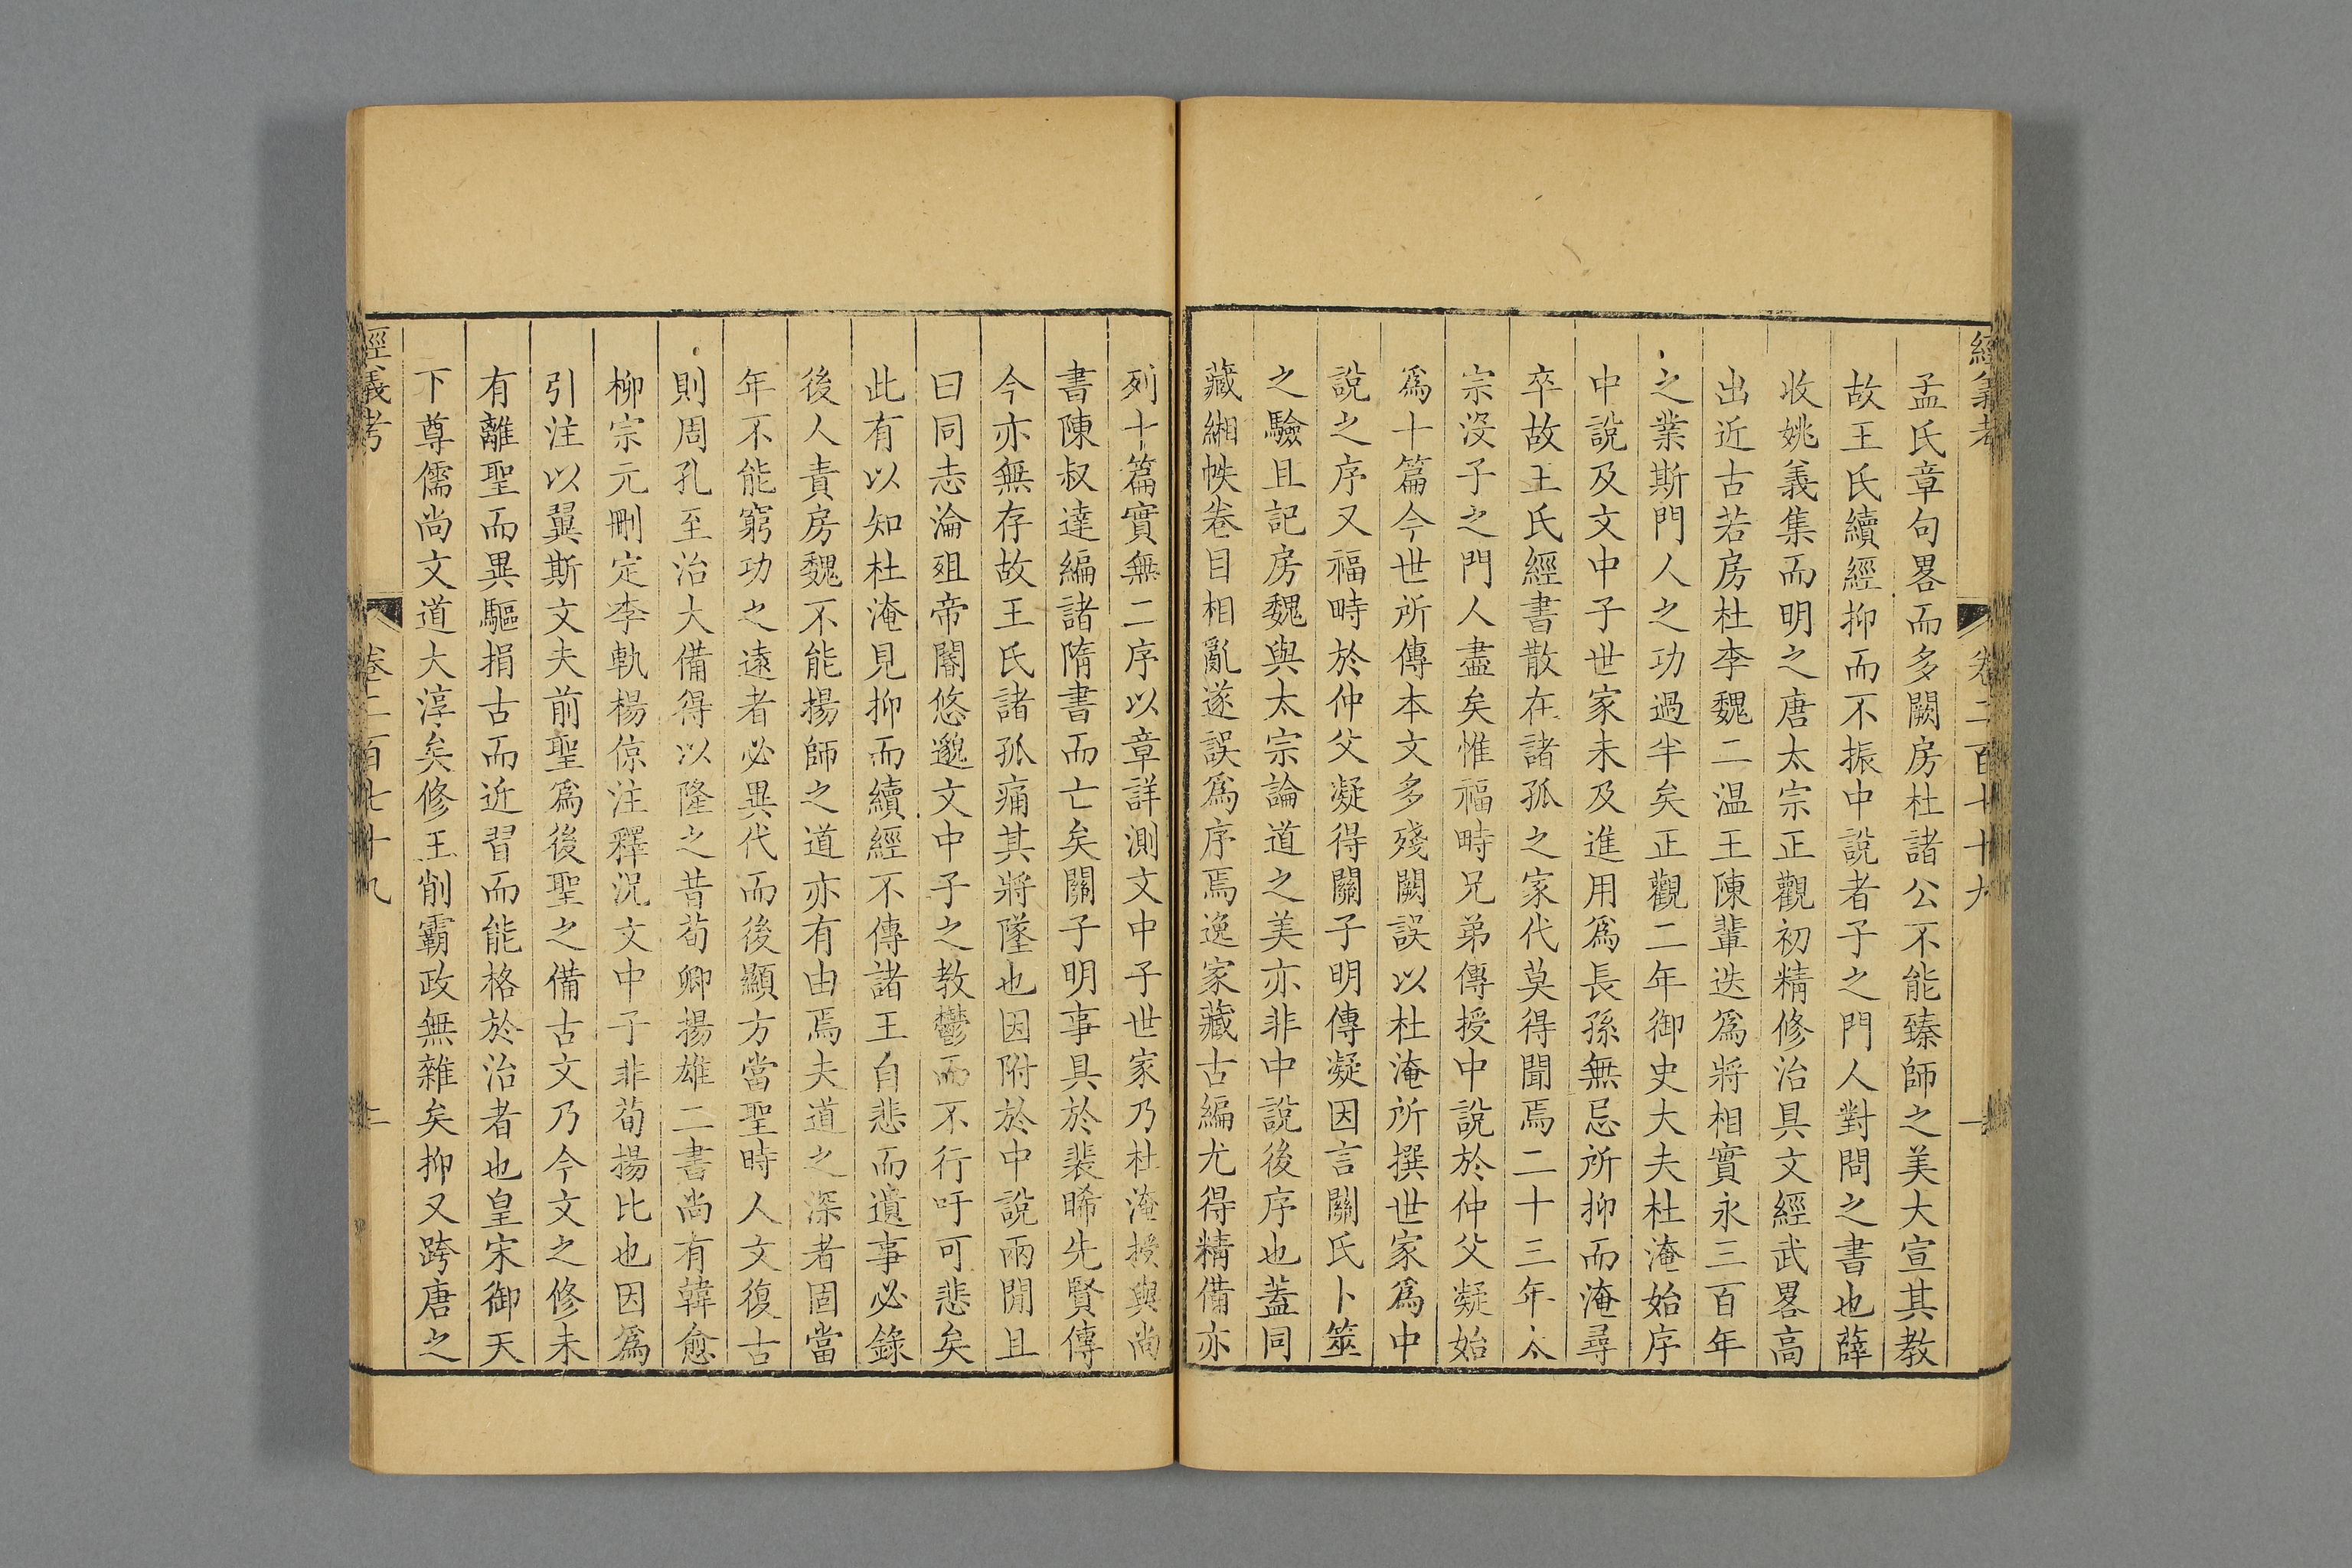 經義考 卷二百七十九 一
孟氏章句畧而多闕房杜諸公不能臻師之美大宣其教
故王氏續經抑而不振中說者子之門人對問之書也薛
收姚義集而明之唐太宗正觀初精修治具文經武畧高
出近古若房杜李魏二温王陳輩迭爲將相實永三百年
之業斯門人之功過半矣正觀二年御史大夫杜淹始序
中說及文中子世家未及進用爲長孫無忌所抑而淹尋
卒故王氏經書散在諸孤之家代莫得聞焉二十三年太
宗沒子之門人盡矣惟福畤兄弟傳授中說於仲父凝始
爲十篇今世所傳本文多殘闕誤以杜淹所撰世家爲中
說之序又福畤於仲父凝得關子明傳凝因言關氏卜筮
之驗且記房魏與太宗論道之美亦非中說後序也蓋同
藏緗帙卷目相亂遂誤爲序焉逸家藏古編尤得精備亦
列十篇實無二序以章詳測文中子世家乃杜淹授與尚
書陳叔達編諸隋書而亡矣關子明事具於裴晞先賢傳
今亦無存故王氏諸孤痛其將墜也因附於中說兩閒且
曰同志淪殂帝閽悠邈文中子之教鬱而不行吁可悲矣
此有以知杜淹見抑而續經不傳諸王自悲而遺事必錄
後人責房魏不能揚師之道亦有由焉夫道之深者固當
年不能窮功之遠者必異代而後顯方當聖時人文復古
則周孔至治大備得以隆之昔荀卿揚雄二書尚有韓愈
柳宗元刪定李軌楊倞注釋況文中子非荀揚比也因爲
引注以翼斯文夫前聖爲後聖之備古文乃今文之修未
有離聖而異驅捐古而近習而能格於治者也皇宋御天
下尊儒尚文道大淳矣修王削霸政無雜矣抑又跨唐之
經義考 卷二百七十九 二